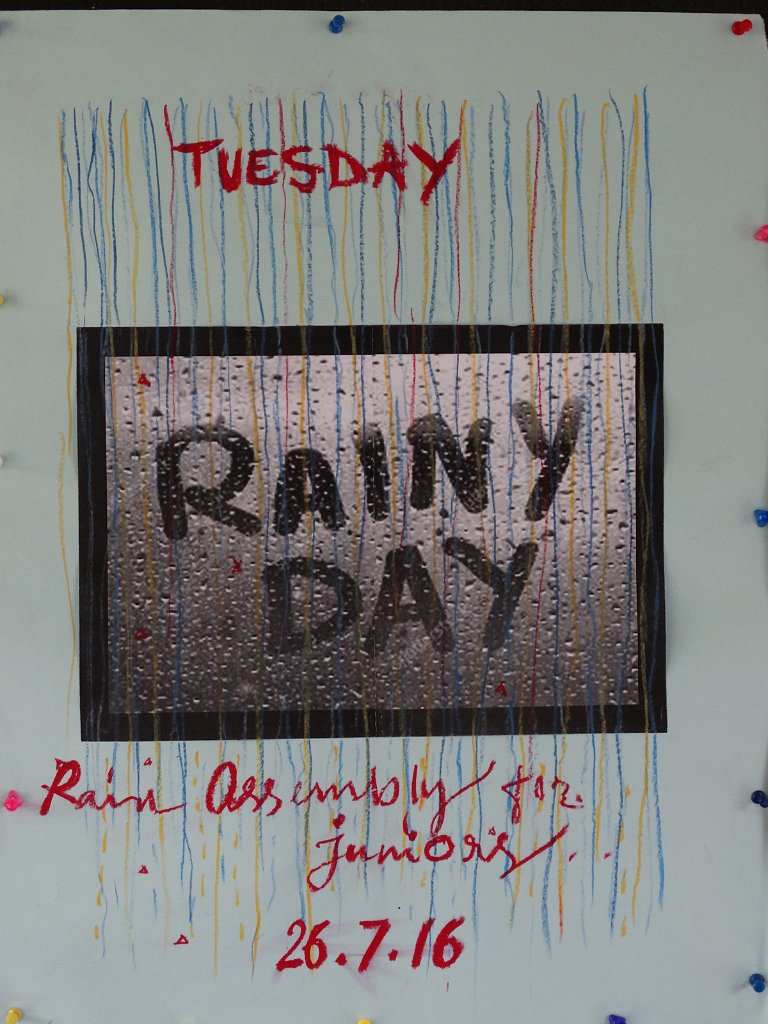 TUESDAY
RAINY
DAY
Rain Assembly for
juniors..
26.7.16